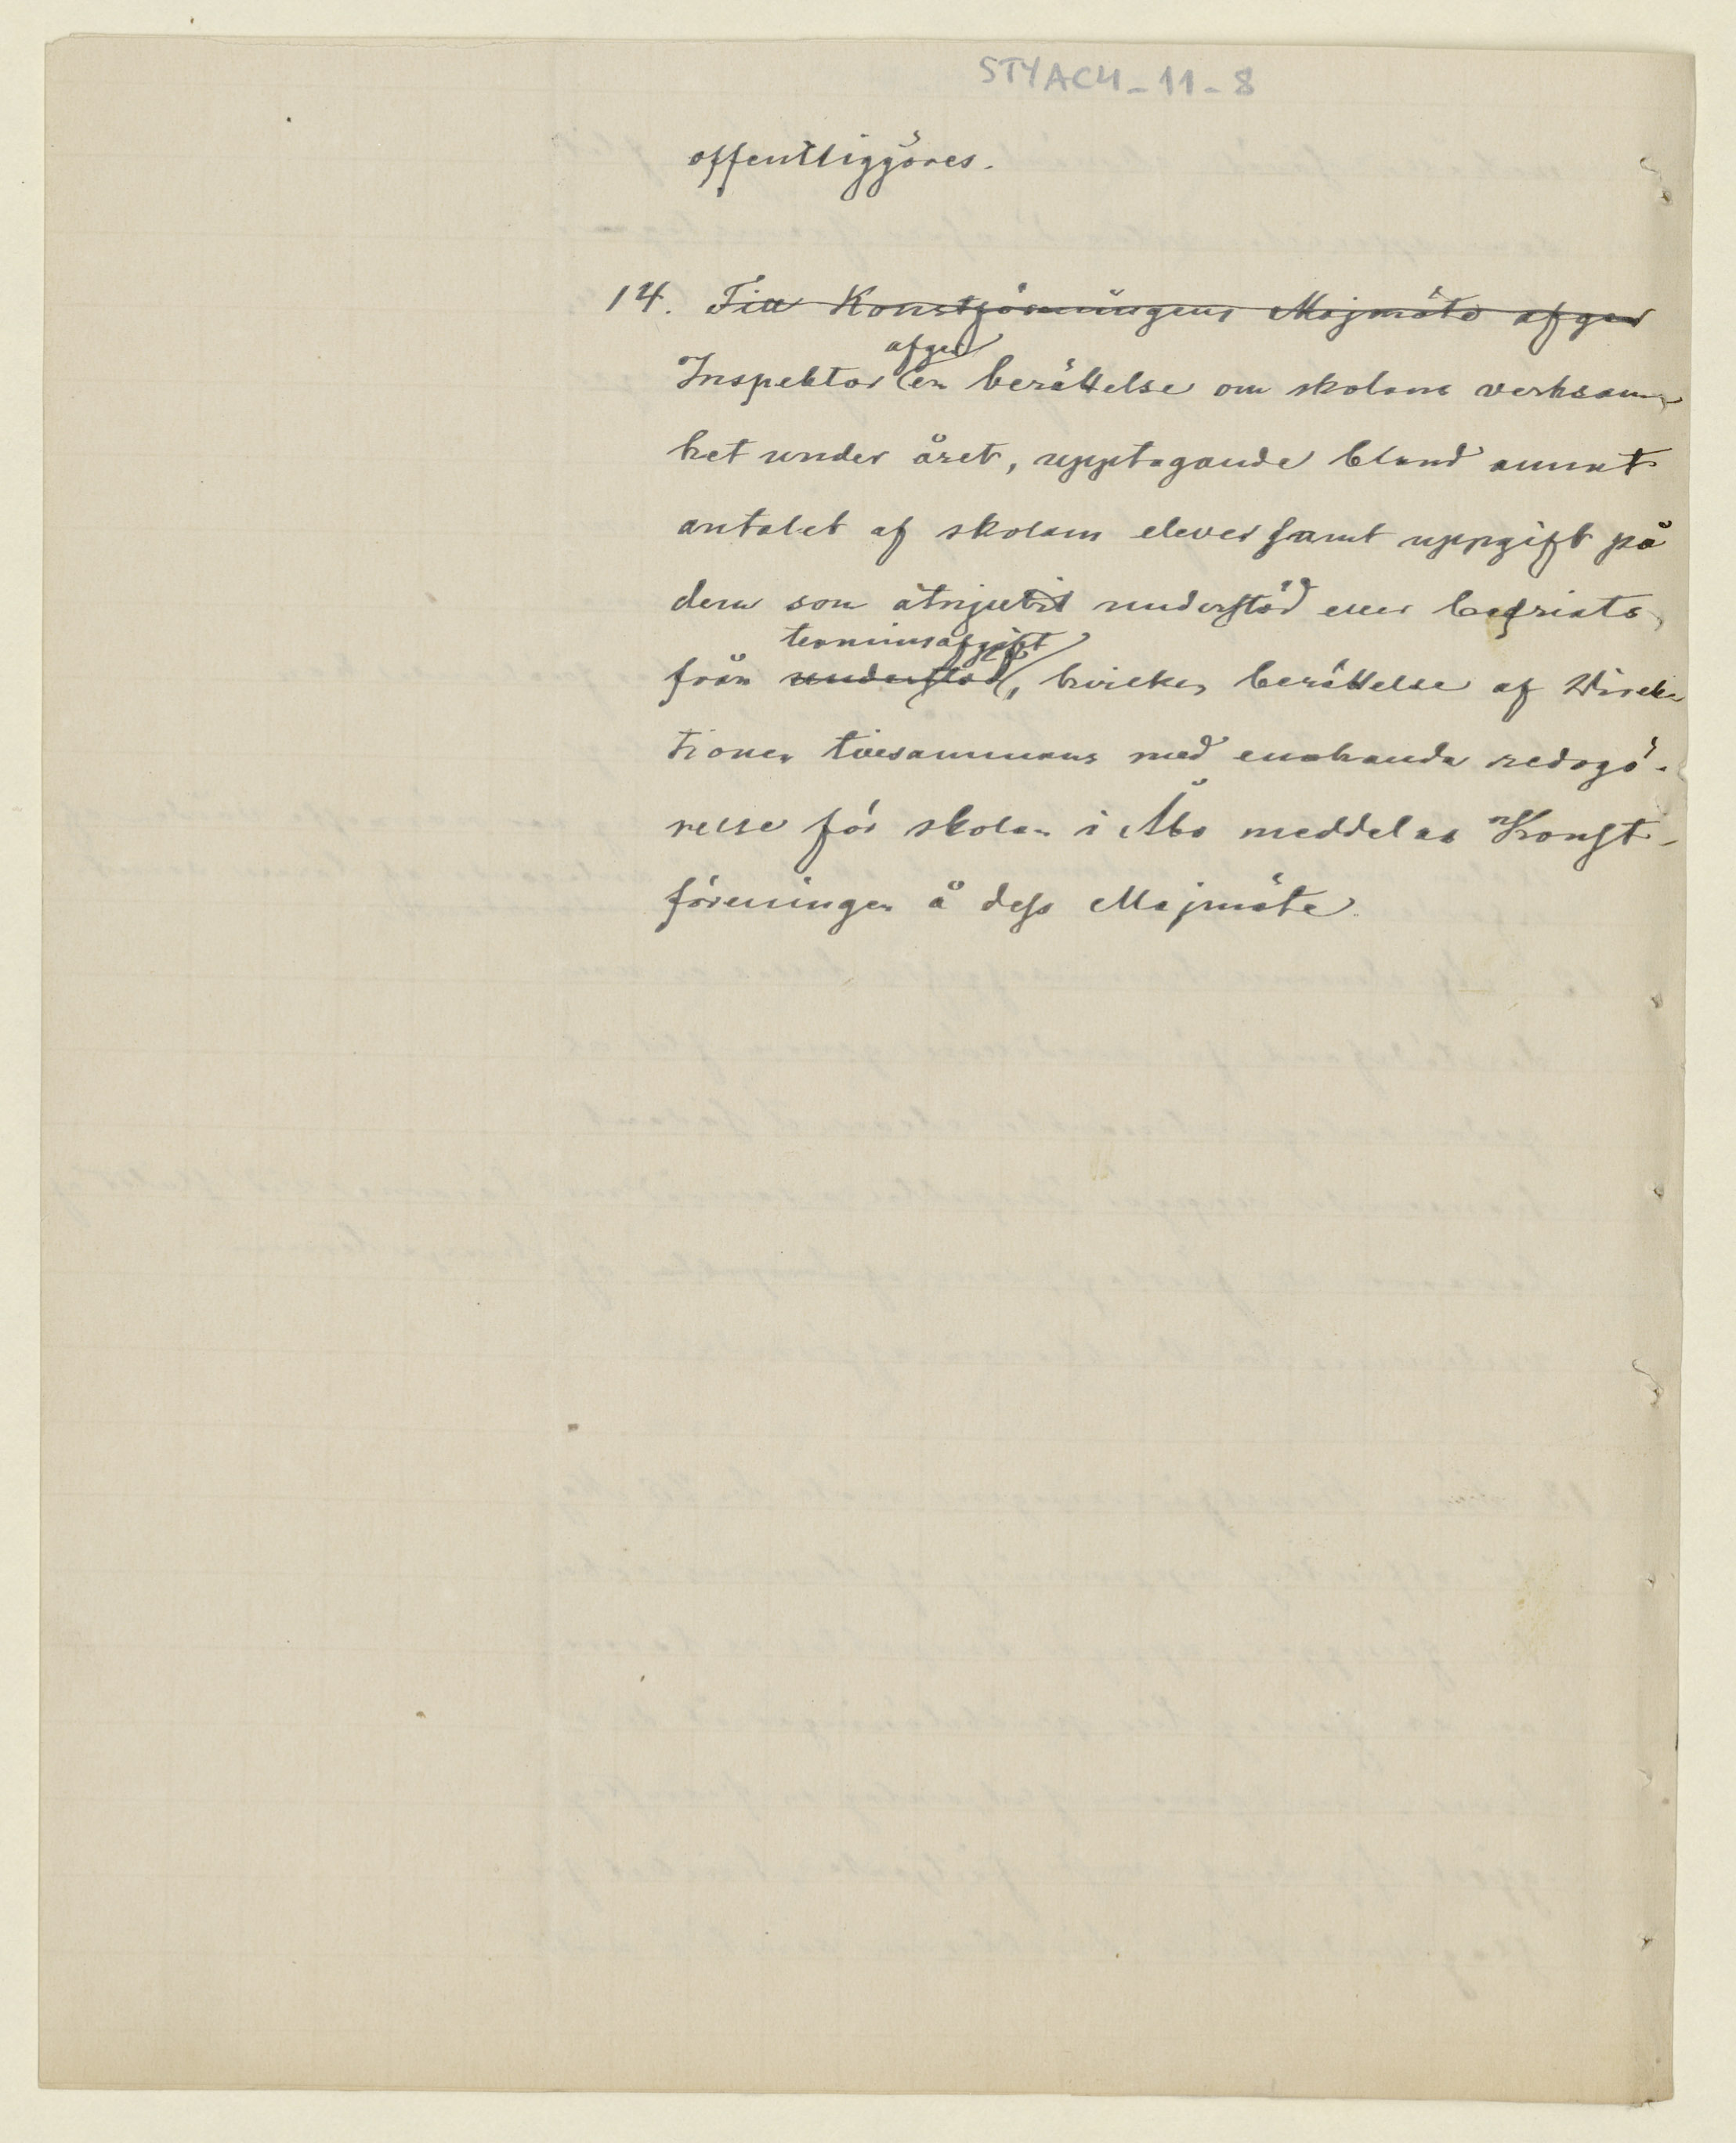 STYACH-11-8
offentliggöres.
14. Till Konstföreningens Majmöte afger
afger
Inspektor en berättelse om skolans verksam-
het under året, upptagande bland annat
antalet af skolans elever samt uppgift på
dem som åtnjutit understöd eller befriats
terminsafgift
från understöd, hvilken berättelse af Direk-
tionen tillsammans med enahanda redogö-
relse för skolan i Åbo meddelas Konst-
föreningen å dess Majmöte.